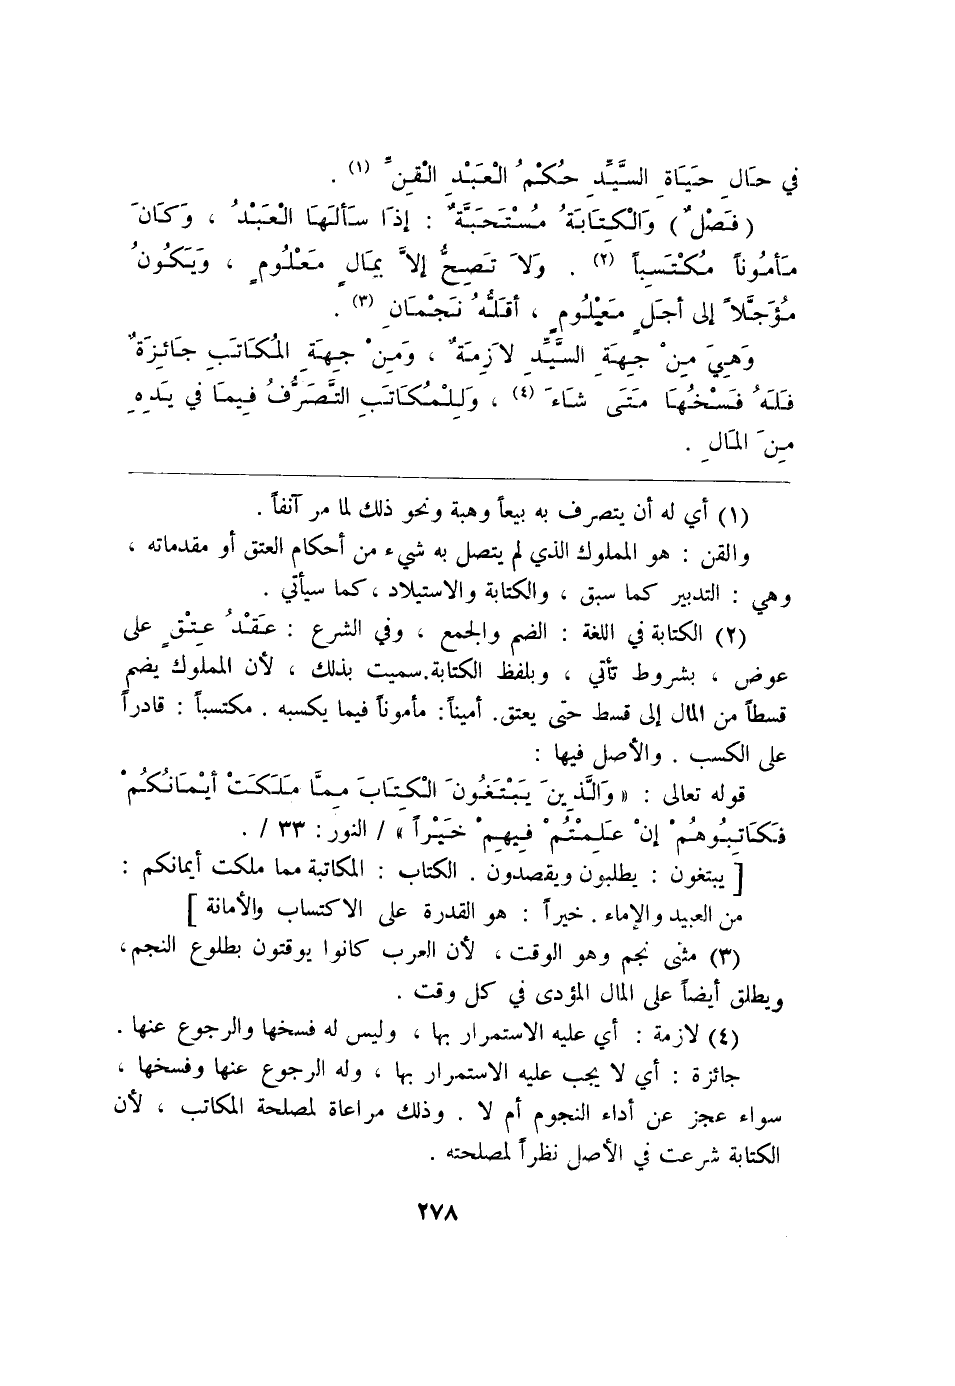 في حَالِ حَيَاةِ السَّيِّدِ حُكْمُ الْعَبْدِ الْقِنِّ (١) .
( فَصْلٌ ) وَالْكِتَابَةُ مُسْتَحَبَّةٌ : إذَا سَأَلَهَا الْعَبْدُ ، وَكَانَ
مَأمُوناً مُكْتَسِباً (٢) . وَلاَ تَصِحُّ إلاَّ بِمَالٍ مَعْلُومٍ ، وَيَكُونُ
مُؤَجَّلاً إلى أجَلٍ مَعْلُومٍ ، أقَلُّهُ نَجْمَانِ (٣) .
وَهِيَ مِنْ جِهَةِ السَّيِّدِ لاَزِمَةٌ ، وَمِنْ جِهَةِ المُكَاتَبِ جَائِزَةٌ
فَلَهُ فَسْخُهَا مَتَى شَاءَ (٤) ، وَلِلْمُكَاتَبِ التَّصَرُّفُ فِيمَا في يَدِهِ
مِنَ المَالِ .
(١) أي له أن يتصرف به بيعاً وهبة ونحو ذلك لما مر آنفاً .
والقن : هو المملوك الذي لم يتصل به شيء من أحكام العتق أو مقدماته ،
وهي : التدبير كما سبق ، والكتابة والاستيلاد ، كما سيأتي .
(٢) الكتابة في اللغة : الضم والجمع ، وفي الشرع : عَقْدُ عِتْقٍ على
عوض ، بشروط تأتي ، وبلفظ الكتابة . سميت بذلك ، لأن المملوك يضم
قسطاً من المال إلى قسط حتى يعتق . أميناً : مأموناً فيما يكسبه . مكتسباً : قادراً
على الكسب . والأصل فيها :
قوله تعالى : « وَالَّذِينَ يَبْتَغُونَ الْكِتَابَ مِمَّا مَلَكَتْ أيْمَانُكُمْ
فَكَاتِبُوهُمْ إنْ عَلِمْتُمْ فِيهِمْ خَيْراً » / النور : ٣٣ / .
[ يبتغون : يطلبون ويقصدون . الكتاب : المكاتبة مما ملكت أيمانكم :
من العبيد والإماء . خيراً : هو القدرة على الاكتساب والأمانة ]
(٣) مثنى نجم وهو الوقت ، لأن العرب كانوا يوقتون بطلوع النجم ،
ويطلق أيضاً على المال المؤدى في كل وقت .
(٤) لازمة : أي عليه الاستمرار بها ، وليس له فسخها والرجوع عنها .
جائزة : أي لا يجب عليه الاستمرار بها ، وله الرجوع عنها وفسخها ،
سواء عجز عن أداء النجوم أم لا . وذلك مراعاة لمصلحة المكاتب ، لأن
الكتابة شرعت في الأصل نظراً لمصلحته .
٢٧٨